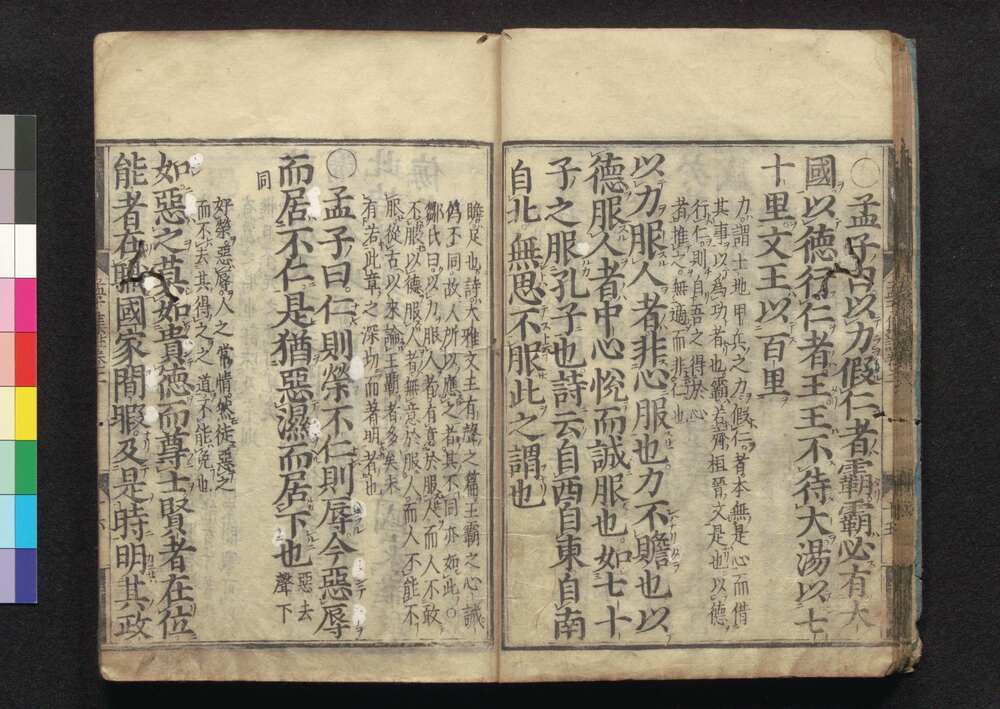 孟子曰以力假仁者霸霸必有大
國以德行仁者王王不待大湯以七
十里文王以百里
力謂土地甲兵之力假仁者本無是心而借
其事以為功者也霸若齊桓晉文是也以德
行仁則自吾之得於心
者推之無適而非仁也
以力服人者非心服也力不贍也以
德服人者中心悅而誠服也如七十
子之服孔子也詩云自西自東自南
自北無思不服此之謂也
贍足也詩大雅文王有聲之篇王霸之心誠
偽不同故人所以應之者其不同亦如此○
鄒氏曰以力服人者有意於服人而人不敢
不服以德服人者無意於服人而人不能不
服從古以來論王霸者多矣未
有若此章之深切而著明者也
孟子曰仁則榮不仁則辱今惡辱
而居不仁是猶惡濕而居下也惡去聲下
同
好榮惡辱人之常情然徒惡之
而不去其得之之道不能免也
如惡之莫如貴德而尊士賢者在位
能者在職國家閒暇及是時明其政